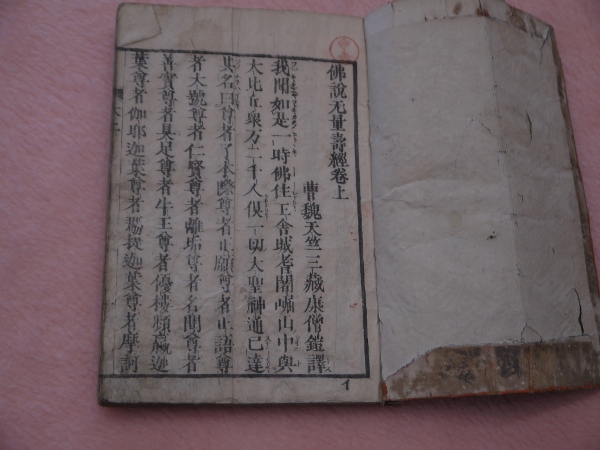 佛說无量壽經卷上
曹魏天竺三藏康僧鎧譯
我聞如是一時佛住王舍城耆闍崛山中與
大比丘衆万二千人俱一切大聖神通已達
其名曰尊者了本際尊者正願尊者正語尊
者大號尊者仁賢尊者離垢尊者名聞尊者
善實尊者具足尊者牛王尊者優樓頻蠃迦
葉尊者伽耶迦葉尊者那提迦葉尊者摩訶
イ